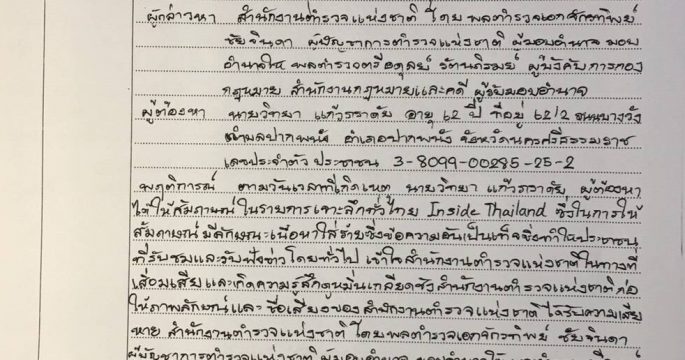 ผู้กล่าวหา สำนักงานตำรวจแห่งชาติ โดย พลตำรวจเอกจักรทิพย์
ชัยจินดา ผู้บัญชาการตำรวจแห่งชาติ ผู้มอบอำนาจ มอบ
อำนาจให้ พลตำรวจตรีอดุลย์ รัตนภิรมย์ ผู้บังคับการกอง
กฎหมาย สำนักงานกฎหมายและคดี ผู้รับมอบอำนาจ
ผู้ต้องหา นายวิทยา แก้วภราดัย อายุ 62 ปี ที่อยู่ 62/2 ถนนบางวัง
ตำบลปากพนัง อำเภอปากพนัง จังหวัดนครศรีธรรมราช
เลขประจำตัวประชาชน 3-8099-00285-25-2
พฤติการณ์ ตามวันเวลาที่เกิดเหตุ นายวิทยา แก้วภราดัย ผู้ต้องหา
ได้ให้สัมภาษณ์ในรายการเจาะลึกทั่วไทย Inside Thailand ซึ่งในการให้
สัมภาษณ์มีลักษณะเนื้อหาใส่ร้ายซึ่งข้อความอันเป็นเท็จซึ่งทำให้ประชาชน
ที่รับชมและรับฟังข่าวโดยทั่วไป เข้าใจสำนักงานตำรวจแห่งชาติในทางที่
เสื่อมเสียและเกิดความรู้สึกดูหมิ่นเกลียดชังสำนักงานตำรวจแห่งชาติต่อ
ให้ภาพลักษณ์และ ชื่อเสียงของสำนักงานตำรวจแห่งชาติ ได้รับความเสีย
หาย สำนักงานตำรวจแห่งชาติ โดยพลตำรวจเอกจักรทิพย์ ชัยจินดา
ผู้บัญชาการตำรวจแห่งชาติ ผู้มอบอำนาจ